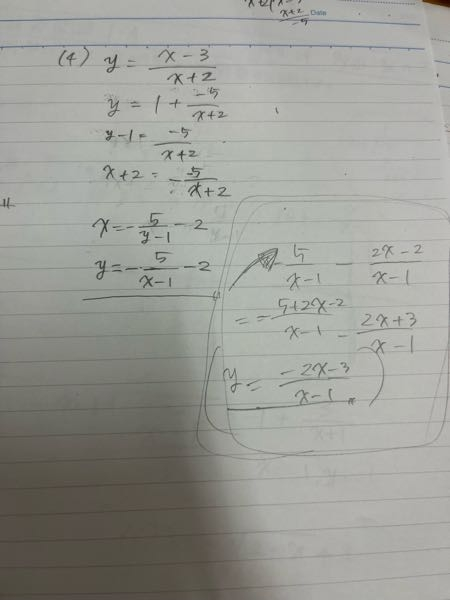 x+2
-5
Date
(4) y = \frac{x-3}{x+2}
y = 1 + \frac{-5}{x+2}
y-1 = \frac{-5}{x+2}
x+2 = -\frac{5}{x+2}
x = -\frac{5}{y-1} - 2
y = -\frac{5}{x-1} - 2
\frac{5}{x-1} - \frac{2x-2}{x-1}
= -\frac{5+2x-2}{x-1} - \frac{2x+3}{x-1}
y = \frac{-2x-3}{x-1}